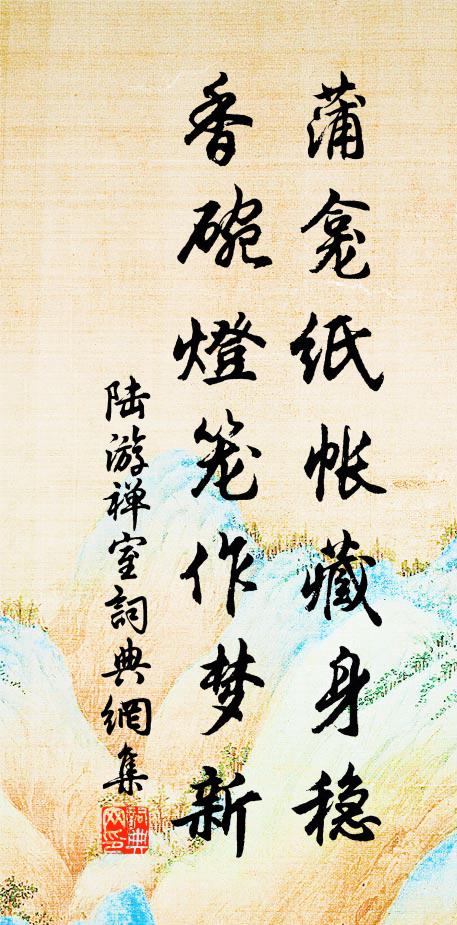 蒲龛纸帐藏身稳
香碗燈笼作梦新
陆游禅室詞典網集
詞典网印